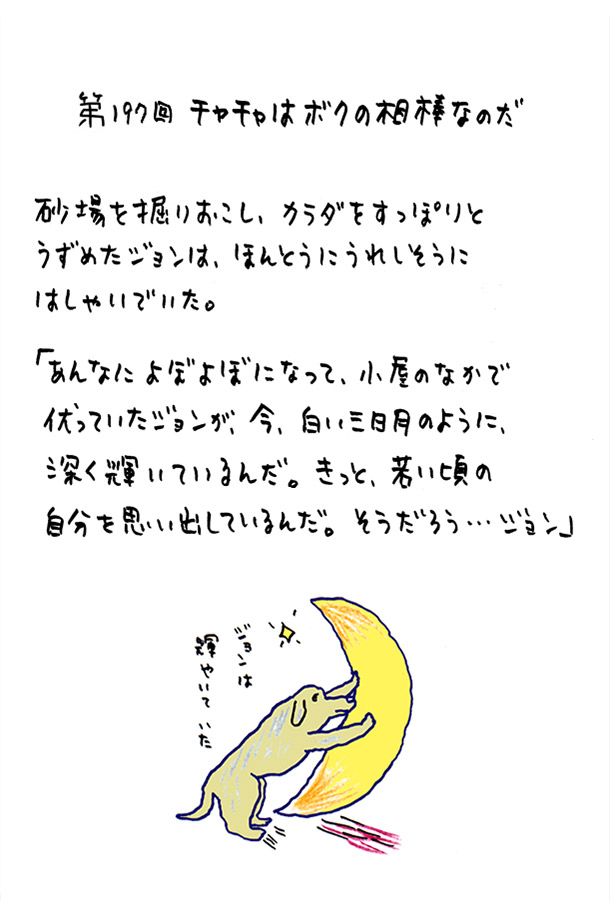 第197回 チャチャはボクの相棒なのだ
砂場を掘りおこし、カラダをすっぽりと
うずめたジョンは、ほんとうにうれしそうに
はしゃいでいた。
「あんなによぼよぼになって、小屋のなかで
伏っていたジョンが、今、白い三日月のように、
深く輝いているんだ。きっと、若い頃の
自分を思い出しているんだ。そうだろう…ジョン」
ジョンは
輝やいていた